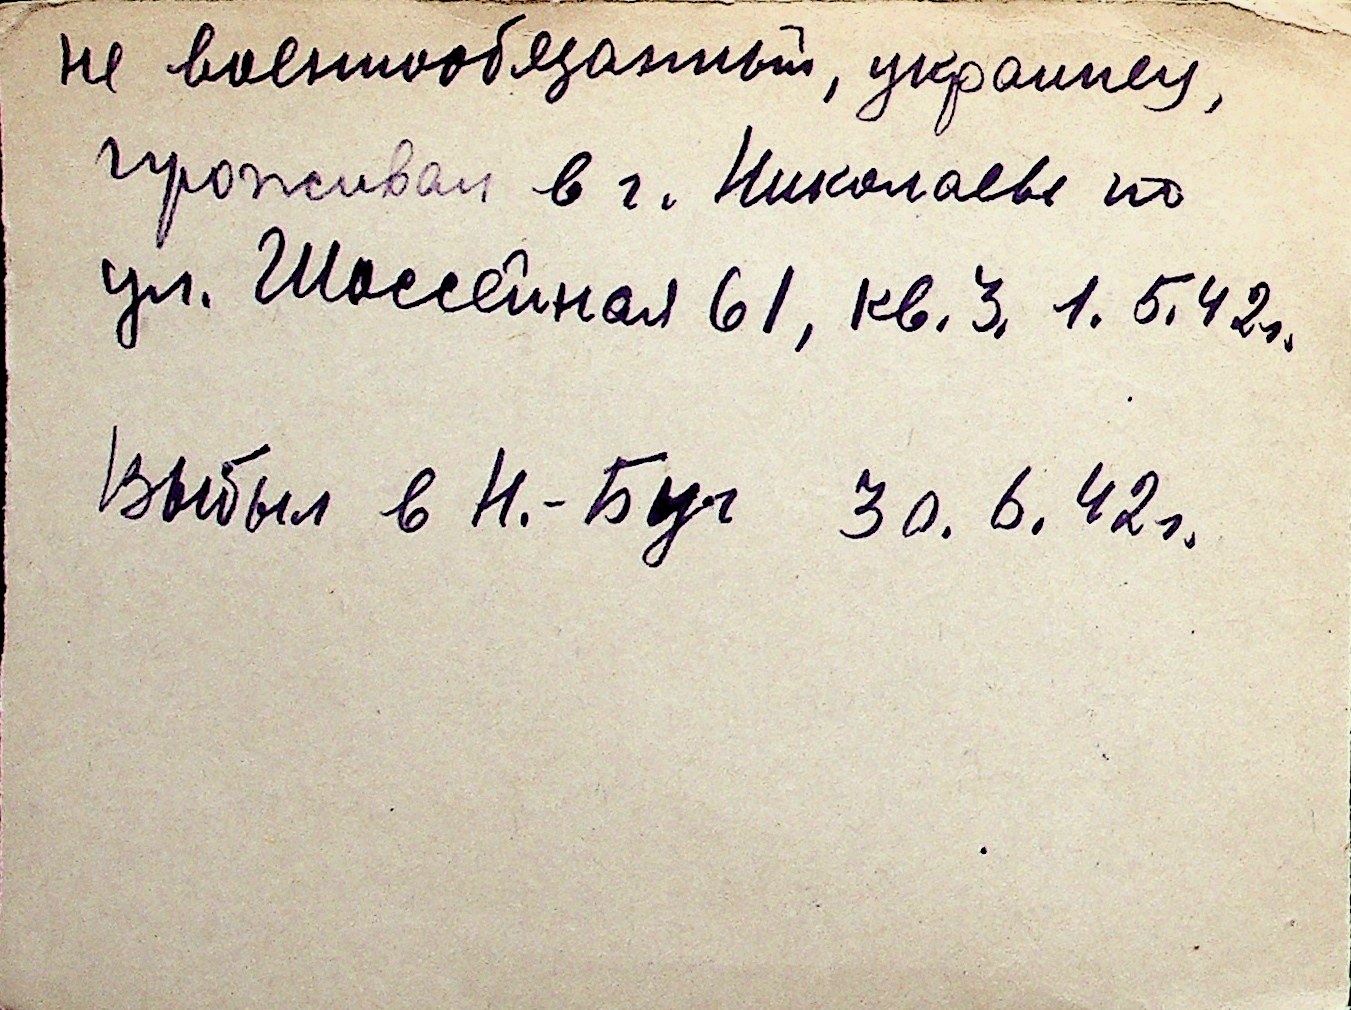 не военнообязанный, украинец,
проживал в г. Николаеве по
ул. Шоссейная 61, кв. 3. 1. 5. 42г.
Выбыл в Н.-Буг 30. 6. 42г.